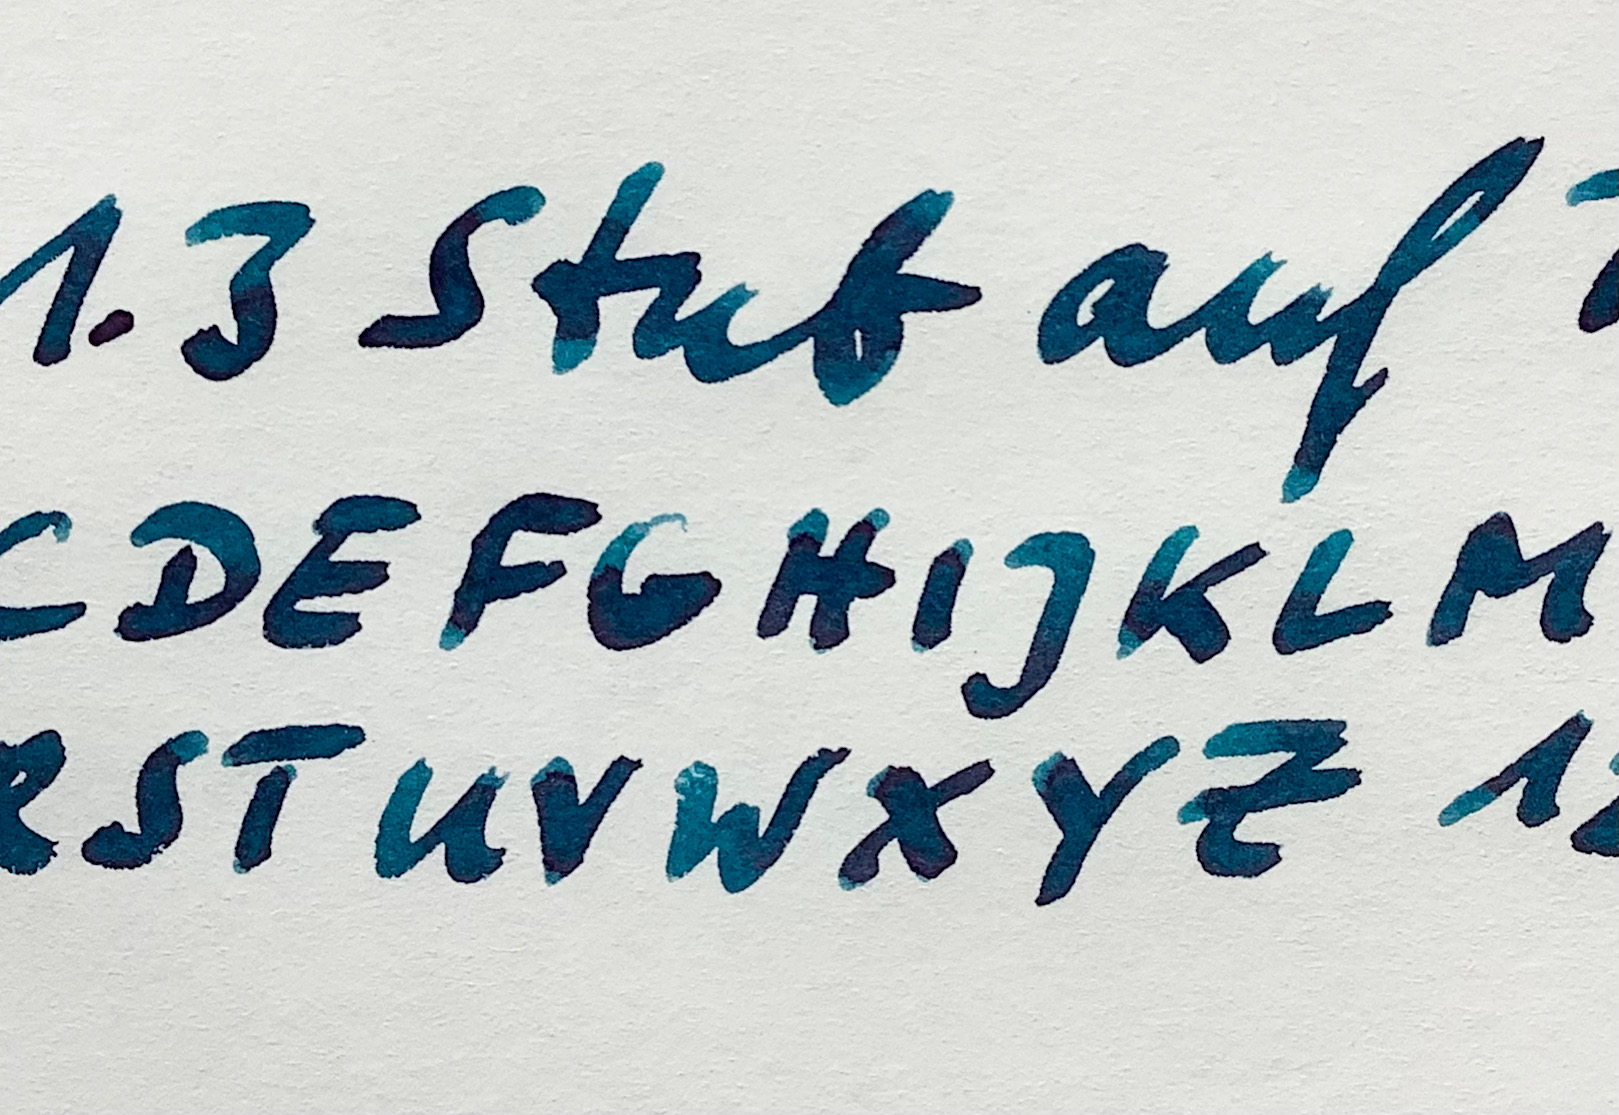 1.3 Stub auf
C D E F G H I J K L M
R S T U V W X Y Z 1